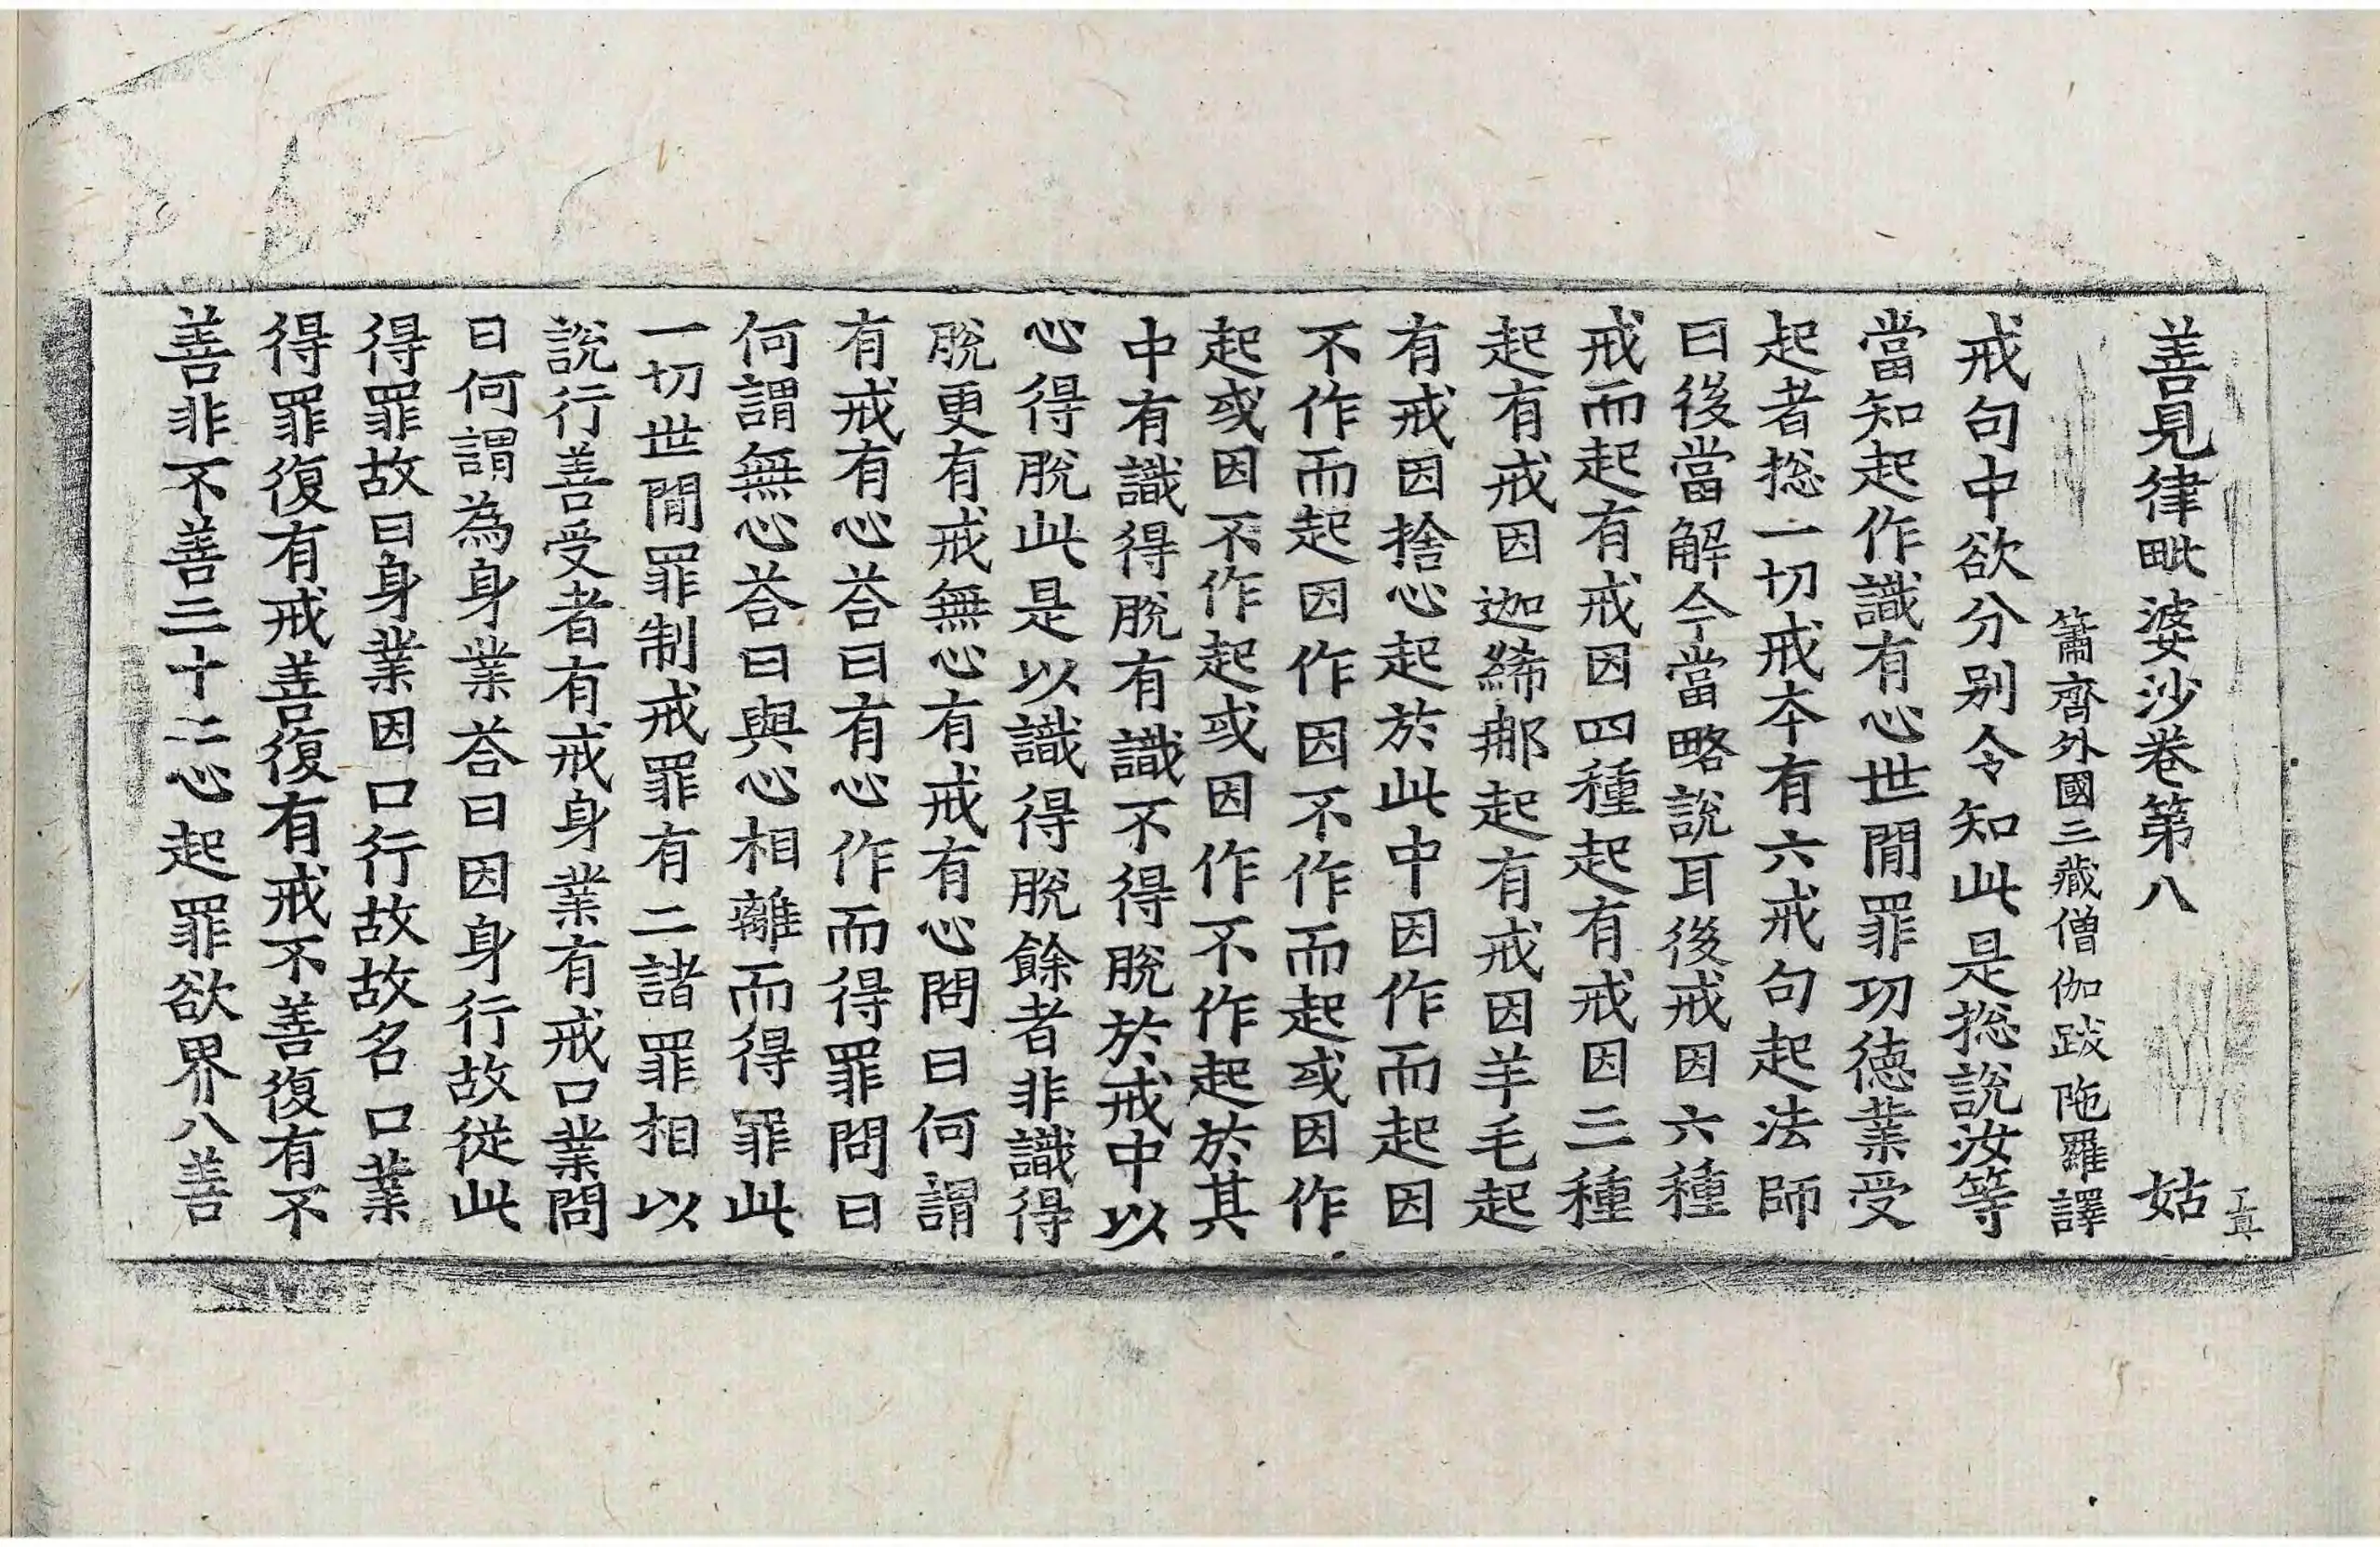 善見律毗婆沙卷第八 姑
簫齊外國三藏僧伽跋陁羅譯
戒句中欲分別令知此是捴說汝等
當知起作識有心世閒罪功德業受
起者捴一切戒夲有六戒句起法師
曰後當解今當略說耳後戒因六種
戒而起有戒因四種起有戒因三種
起有戒因迦絺那起有戒因羊毛起
有戒因捨心起於此中因作而起因
不作而起因作因不作而起或因作
起或因不作起或因作不作起於其
中有識得脫有識不得脫於戒中以
心得脫此是以識得脫餘者非識得
脫更有戒無心有戒有心問曰何謂
有戒有心荅曰有心作而得罪問曰
何謂無心荅曰與心相離而得罪此
一切世閒罪制戒罪有二諸罪相以
說行善受者有戒身業有戒口業問
曰何謂為身業荅曰因身行故從此
得罪故曰身業因口行故故名口業
得罪復有戒善復有戒不善復有不
善非不善三十二心起罪欲界八善